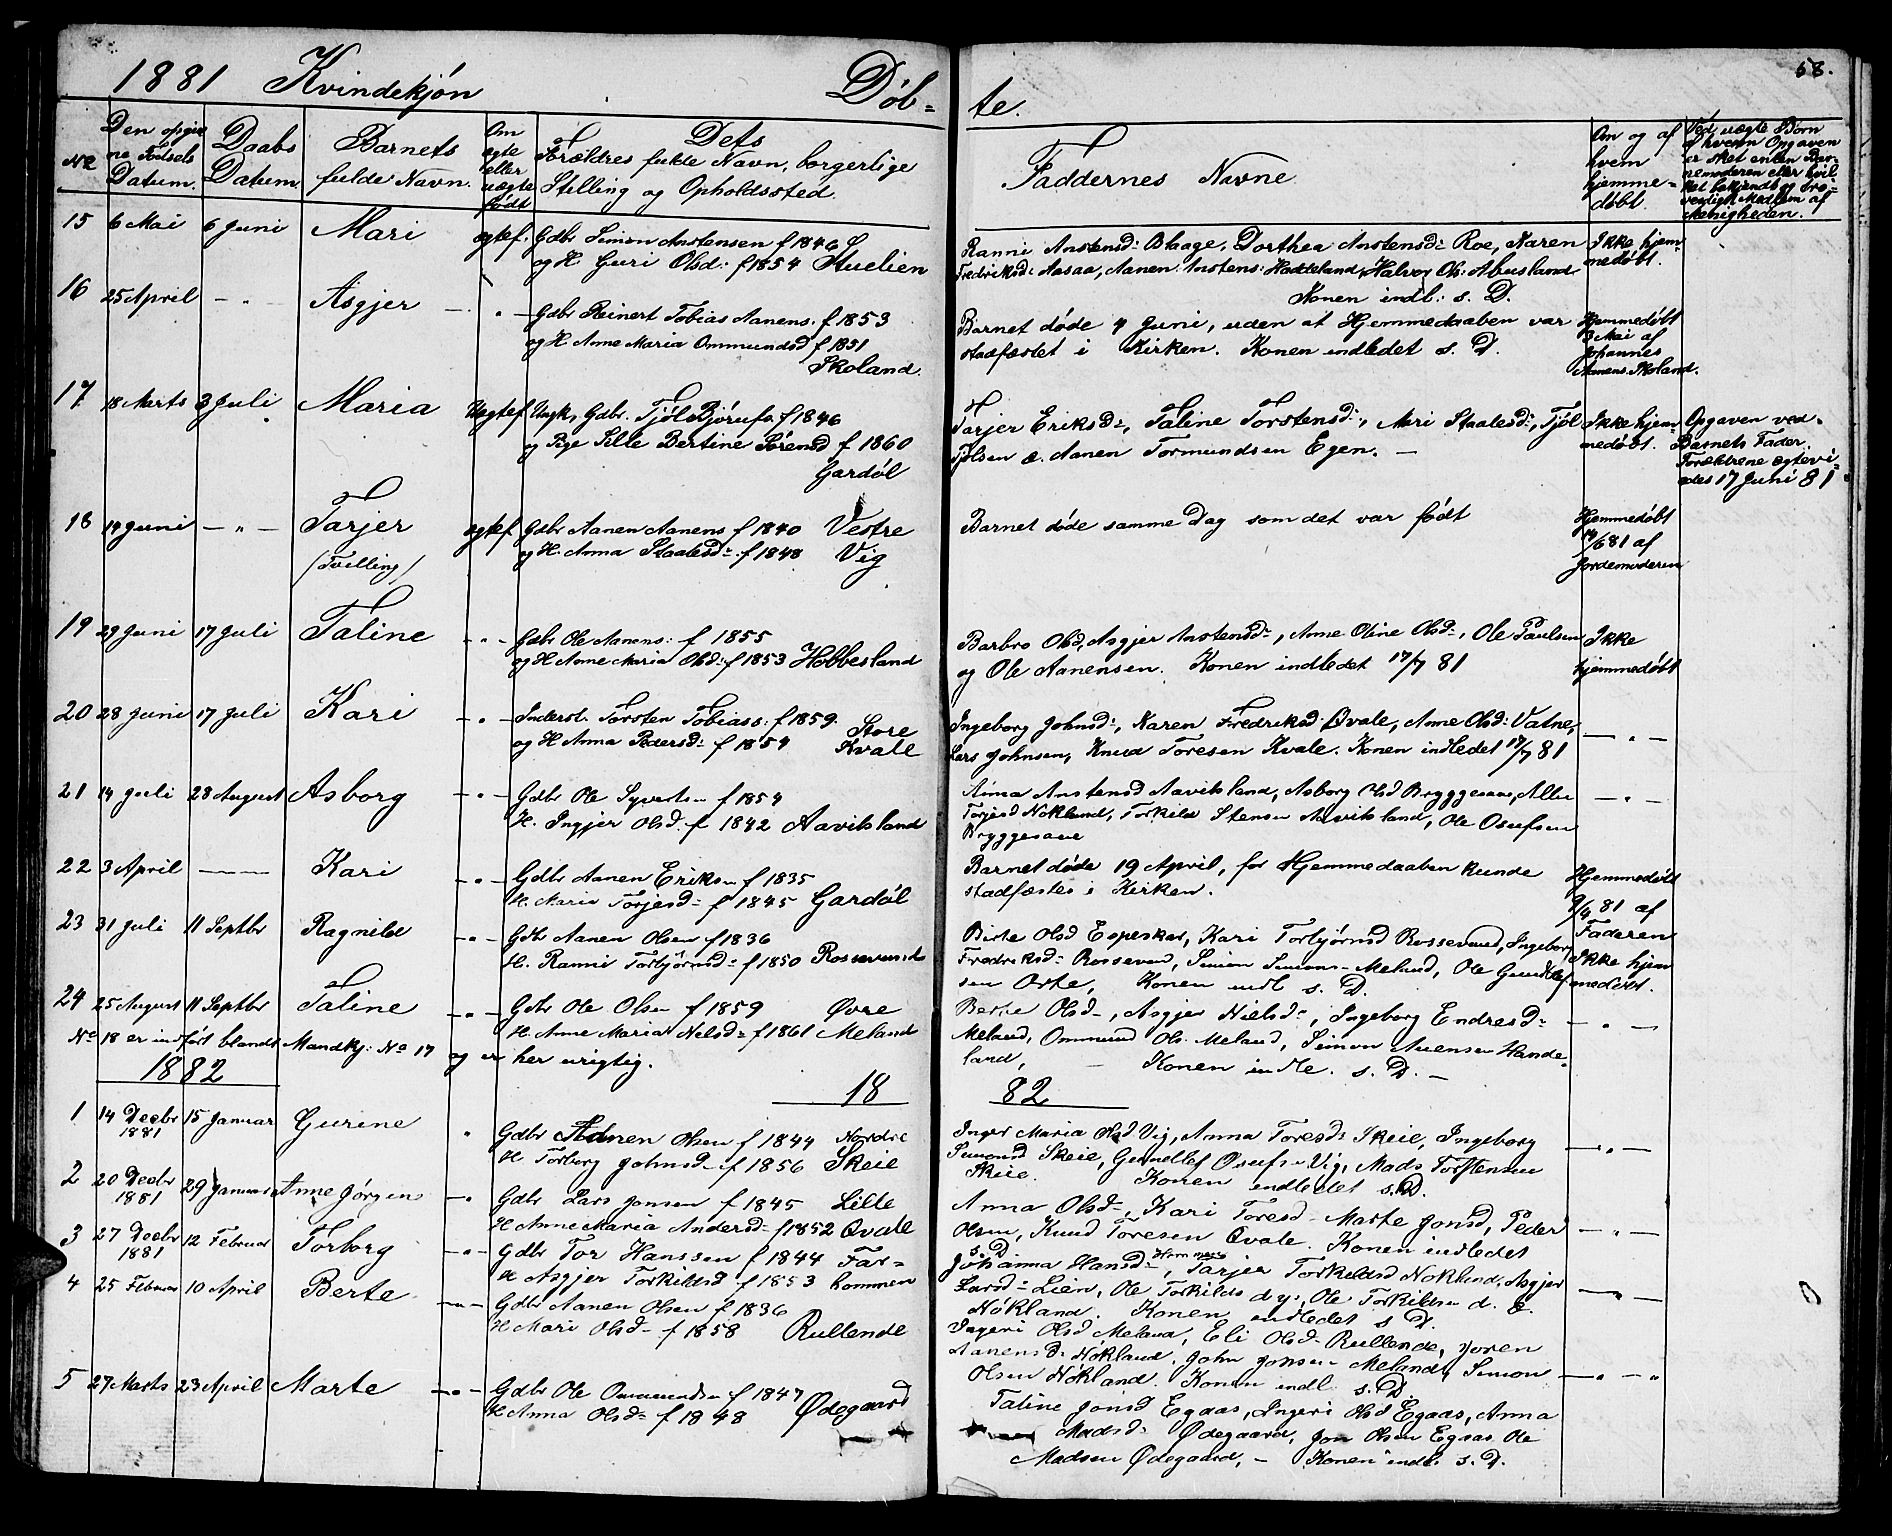 58.
1881 Kvindekjøn Døb-
te.
No
Den opgiv
ne Fødsels
Datum.
Daabs
Datum.
Barnets
fulde Navn.
Om
egte
eller
uegte
født
Dets
Forældres fulde Navn, borgerlige
Stilling og Opholdssted.
Faddernes Navne
Om og af
hvem
hjemme-
døbt.
Ved uægte Børn
af hvem Opgaven
er sket enten Bar-
nemoderen eller hvil
ket bekjendt og tro-
værdigt Medlem af
Menigheden.
15 6 Mai 6 Juni Mari egtef. Gdbr Simon Anstensen f 1846
og H. Guri Olsd: f 1854 Stuelien
Ranni Anstensd: Blaage, Dorthea Anstensd: Roe, Karen
Fredriksd: Aasaa, Aanen Anstens: Haddeland, Halvor Ols: Abusland
Konen indl: s. D.
Ikke hjem
medøbt.
16 25 April — " — Asgjer — " — Gdbr Reinert Tobias Aanens. f 1853
og H. Anne Maria Ommundsd f 1851
Skoland.
Barnet døde 4 Juni, uden at Hjemmedaaben var
stadfæstet i Kirken. Konen indledet s. D.
Hjemmedøbt
3 Mai af
Johannes
Aanens. Skoland.
17 18 Marts 3 Juli Maria Uegtef. Ungk. Gdbr. Tjøl Bjørufs f 1846
og Pige Sille Bertine Sørensd f 1860
Gardøl
Tarjer Eriksd:, Taline Torstensd:, Mari Staalesd:, Tjøl
Tjølsen æ. Aanen Tormundsen Egen. —
Ikke hjem
medøbt.
Opgaven ved
Barnets Fader.
Forældrene egtevi
edes 17 Juni 81
18 14 Juni — " — Tarjer
(Tvilling)
egtef. Gdbr Aanen Aanens f 1840 Vestre
og H. Anna Staalesd: f 1848 Vig
Barnet døde samme Dag som det var født
Hjemmedøbt
14/6 81 af
Jordemoderen
19 29 Juni 17 Juli Taline — " — Gdbr Ole Aanens: f 1855
og H Anne Maria Olsd: f 1853 Hobbesland
Barbro Olsd, Asgjer Anstensd:, Anne Oline Olsd:, Ole Paulsen
og Ole Aanensen. Konen indledet 17/7 81
Ikke
hjemmedøbt
20 28 Juni 17 Juli Kari — " — Inderst. Torsten Tobiass: f 1859. Store
og H Anna Pedersd: f 1854 Kvale
Ingeborg Johnsd:, Karen Fredriksd: Qvale, Anne Olsd: Vatne,
Lars Johnsen, Knud Toresen Kvale. Konen indledet 17/7 81
— " —
21 14 Juli 28 August Asborg — " — Gdbr Ole Syvertsen f 1854
H. Ingjer Olsd: f 1842 Aavitsland
Anstensd Aavitsland, Asborg Olsd Bryggesaae,
Torjesd Nokland, Torkild Stensen Aavitsland, Ole Osufsen
Bryggesaae
— " —
22 3 April — — Kari — " — Gdbr Aanen Eriksen f 1835
H. Maria Torjesd: f 1845 Gardøl
Barnet døde 19 April, før Hjemmedaaben kunde
stadfæstes i Kirken.
Hjemmedøbt
9/4 81 af
Faderen
23 31 Juli 11 Septbr Ragnild — " — Gdbr Aanen Olsen f 1836
H. Ranni Torbjørnsd: f 1850 Rossevund
Birte Olsd Espeskar, Kari Torbjørnsd Rossevund, Ingeborg
Fredriksd: Rossevund, Simon Simons- Meland, Ole Gundlef
sen Orte, Konen indl s. D.
Ikke hjem
medøbt.
24 25 August 11 Septbr Taline — " — Gdbr Ole Olsen f 1859 Øvre
H. Anne Maria Nelsd: f 1861 Meland
Berte Olsd-, Asgjer Nielsd:, Ingeborg Endresd:
Meland, Ommund Ols. Meland, Simon Auensen Hande-
land, — Konen indle. s. D. —
— " —
No 18 er indført blandt Mandkj: No 17 og er her urigtig.
1882
1882
1 14 Decbr 15 Januar Gurine " Gdbr Aanen Olsen f 1844 Nordre
1881
H Torborg Johnsd- f 1856 Skeie
Inger Maria Olsd Vig, Anna Toresd: Skeie, Ingeborg
Simonsd Skeie, Gunnllef Osufsen Vig, Mads Torstensen
Skeie. Konen indledet s. D.
— " —
2 20 Decbr 29 Januar Anne Jørgens — " Gdbr Lars Jonsen f 1845 Lille
1881
H Anne Maria Andersd- f 1852 Qvale
Anna Olsd-, Kari Toresd- Marte Jonsd, Peder
Olsen, Knud Toresen Qvale. Konen indledet
s. D
— " —
3 27 Decbr 12 Februar Torborg — " — Gdbr Tor Hanssen f 1844 Far-
1881
H Asgjer Torkildsd f 1853 kommen
Johanna Hansd-, Tarjer Torkildsd Nokland, Asgjer
Larsd- Lien, Ole Torkilds d y:, Ole Torkildsen d. æ.
Nøkland. Konen indledet s D.
— " —
4 25 Februar 10 April Berte — " — Gdbr Aanen Olsen f 1836
H Mari Olsd- f 1858 Rullende
Ingeri Olsd Meland, Eli Olsd- Rullende, Joren
Aanensd: Nøkland, John Jonsen Meland, Simon
Olsen Nøkland. Konen indl s. D.
— " — "
5 27 Marts 23 April Marte — " — Gdbr Ole Ommundsen f 1847
H Anna Olsd: f 1848 Ødegaard
Taline Jonsd Egaas, Ingeri Olsd Egaas, Anna
Madsd: Ødegaard, Jon Olsen Egaas Ole
Madsen Ødegaard, — Konen indl. s. D.